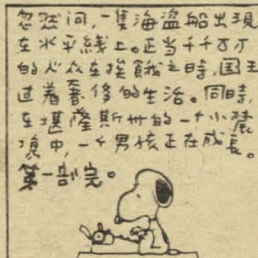 忽然间,一隻海盗船出現
在水平綫上。正当千千万万
的人众在挨餓之時,国王
过着奢侈的生活。同時,
在堪隆斯州的一个小農
場中,一个男孩正在成長。
第一部完。